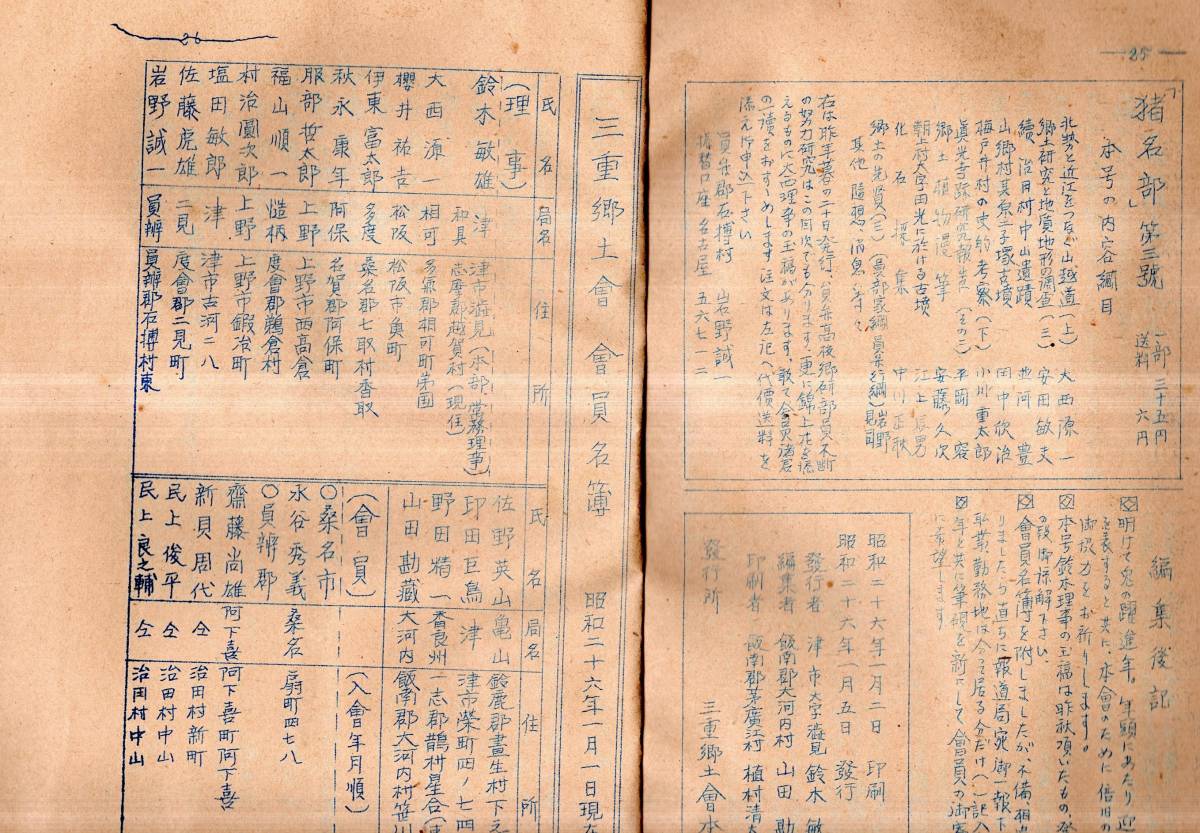 25
「猪名部」第三號 一部 三十五円 送料 六円
本号の内容綱目
北勢と近江をつなぐ山越道(上) 大西源一
郷土研究と地質地形の調査(三) 安田敏夫
續 治田村中山遺蹟 並河 豊
山郷村其原二子塚古墳 田中欣治
梅戸井村の史的考察(下) 小川重太郎
眞光寺跡研究報告(その二) 平岡
郷土植物漫筆 安藤久次
朝上府大字田光に於ける古墳 江上
化石採集 中川正秋
郷土の先賢(三)
其他 隨想 消息
の努力研究はこの目次でも分ります。更に錦上花を添
えるものに大西理事の玉稿があります。敢て会員諸君
の一読をおすゝめします 注文は左記へ代價送料を
添え御申込下さい
員弁郡石榑村 岩野誠一
振替口座 名古屋 五六七一二
編集後記
明けて兎の躍進年。年頭にあたり迎
を表すると共に、本会のために倍旧の
御協力をお祈りします。
本号鈴木理事の玉稿は昨秋頂いたもの、発
の段御諒解下さい。
會員名簿を附しましたが、不備、相
りましたら直ちに報道局宛御一報下
私業勤務地は分って居る分だけ(一)記入
年と共に筆硯を新にして會員の御寄
に希望します
昭和二十六年一月二日 印刷
昭和二十六年一月五日 發行
發行者 津市大字澁見 鈴木 敏
編集者 飯南郡大河内村 山田 勘
印刷者 飯南郡茅廣江村 植村清
發行所 三重郷土會本
26
三重郷土會會員名簿 昭和二十六年一月一日現在
氏名 局名 住所
(理事)
鈴木敏雄 津 津市澁見(本部、常務理事)
和具 志摩郡越賀村(現住)
大西源一 相可 多氣郡相可町
櫻井祐吉 松阪 松阪市魚町
伊東富太郎 多度 桑名郡七取村香取
秋永康年 阿保 名賀郡阿保町
服部哲太郎 上野 上野市西高倉
福山順一 慥柄 度會郡鵜倉村
村治圓次郎 上野 上野市鍛冶町
塩田敏郎 津 津市古河二八
佐藤虎雄 二見 度會郡二見町
岩野誠一 員辨 員辨郡石榑村東
氏名 局名 住所
佐野英山 亀山 鈴鹿郡晝生村下之
印田巨鳥 津 津市榮町四ノ七四
野田精一 香良州 一志郡鵲村星合
山田勘藏 大河内 飯南郡大河内村笹川
(會員) (入會年月順)
○桑名市
永谷秀義 桑名 扇町四七八
○員辨郡
齋藤尚雄 阿下喜 阿下喜町阿下喜
新貝周代 仝 治田村新町
民上俊平 仝 治田村中山
民上良之輔 仝 治田村中山